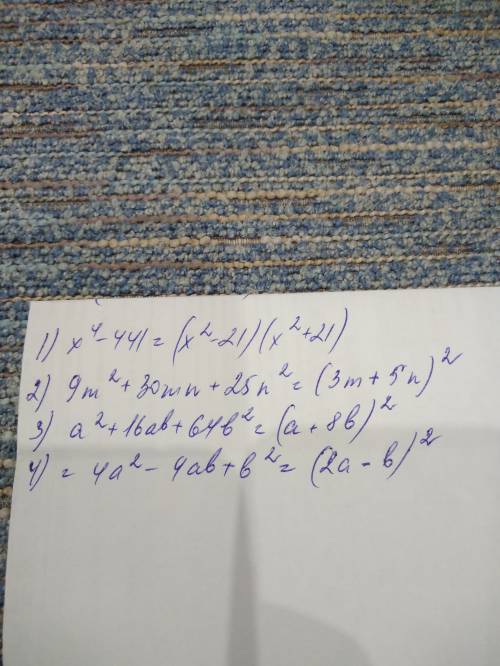 1) x⁴-441=(x²-21)(x²+21)
2) 9m²+30mn+25n²=(3m+5n)²
3) a²+16ab+64b²=(a+8b)²
4) = 4a²-4ab+b²=(2a-b)²